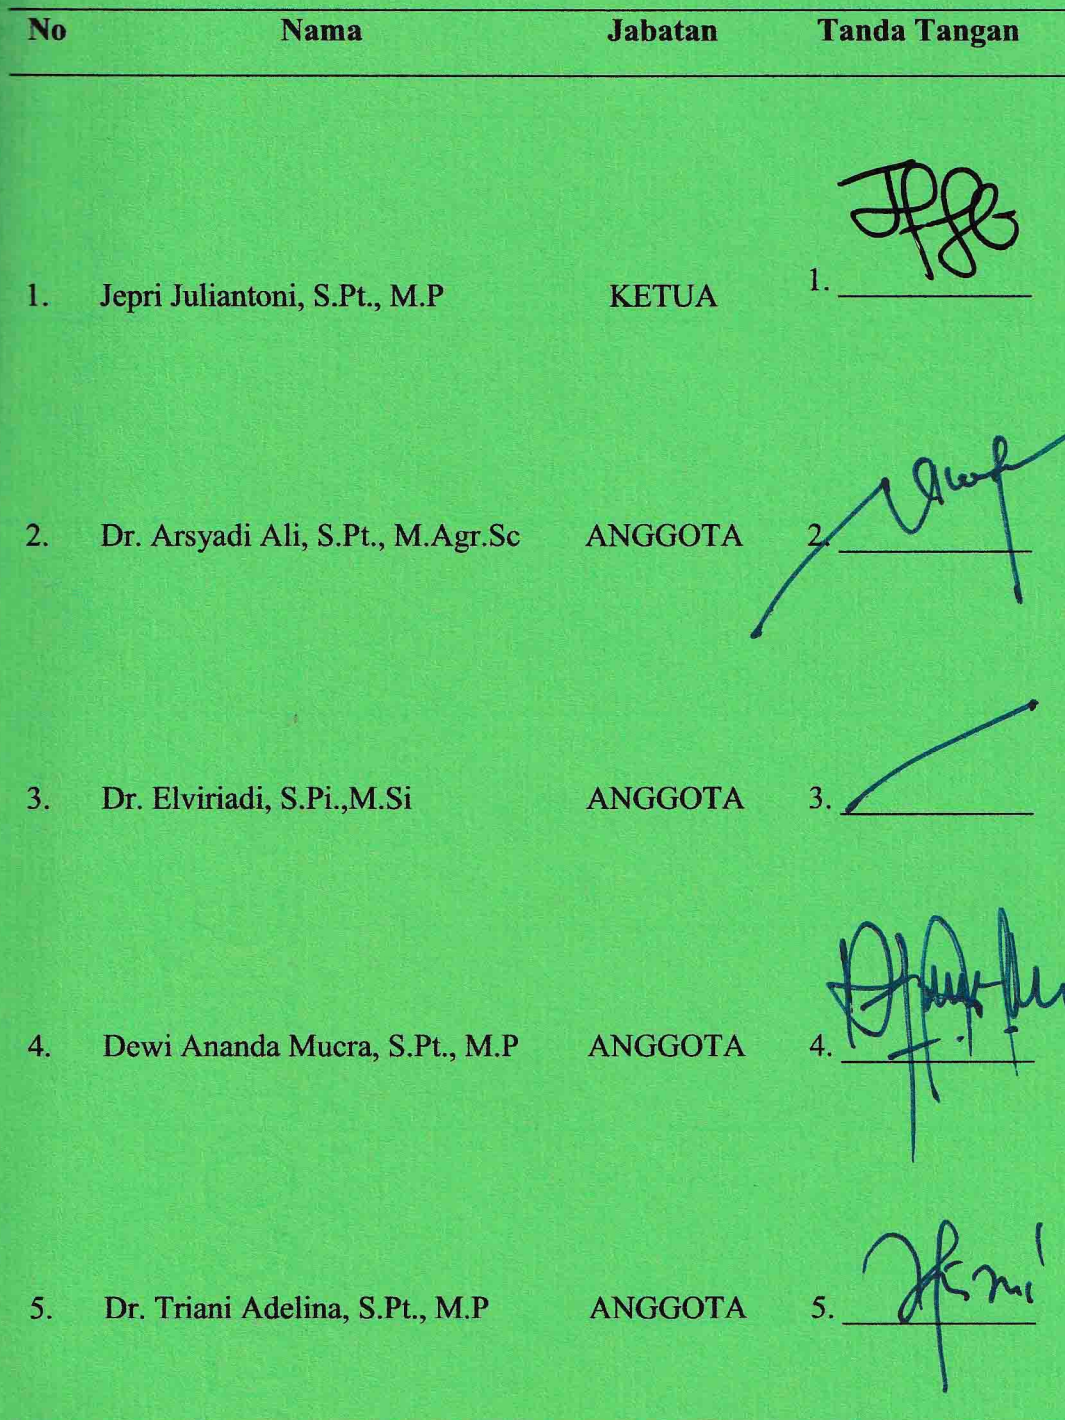 No Nama Jabatan Tanda Tangan
1. Jepri Juliantoni, S.Pt., M.P KETUA 1.
2. Dr. Arsyadi Ali, S.Pt., M.Agr.Sc ANGGOTA 2.
3. Dr. Elviriadi, S.Pi.,M.Si ANGGOTA 3.
4. Dewi Ananda Mucra, S.Pt., M.P ANGGOTA 4.
5. Dr. Triani Adelina, S.Pt., M.P ANGGOTA 5.